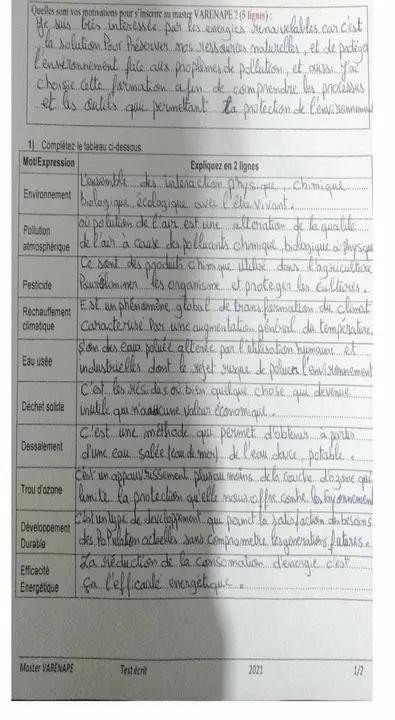 Quelles sont vos motivations pour s'inscrire au master VARENAPE ? (5 lignes) :
Je suis très intéressée par les energies renouvelables car c'est
la solution Pour Préserver nos ressources naturelles, et de protéger
l'environnement face aux proplèmes de pollution, et aussi j'ai
choisie cette formation afin de comprendre les processus
et les outils qui permettant la protection de l'environnement
1) Complétez le tableau ci-dessous.
Mot/Expression
Expliquez en 2 lignes
Environnement
L'ensemble des interaction physique, chimique
biologique, écologique avec l'être vivant.
Pollution atmosphérique
ou polution de l'air est une alteration de la qualité
de l'air à cause des polluants chimique, biologique ou physique
Pesticide
Ce sont des produits chimique utilisé dans l'agriculture
Pour éliminer les organisme et proteger les cultures.
Réchauffement climatique
Est un phénomène global de transformation du climat
caractérisé Par une augmentation général du température.
Eau usée
Son des eaux polluée altérée par l'utilisation humaine et
industrielles dont le rejet risque de polluer l'environnement
Déchet solide
C'est les résidus ou bien quelque chose qui devenue
inutile qui n'a aucune valeur économique.
Dessalement
C'est une méthode qui permet d'obtenir à partir
d'une eau salée (eau de mer) de l'eau douce, potable.
Trou d'ozone
C'est un appauvrissement plus ou moins de la couche d'ozone qui
limite la protection qu'elle nous offre contre les rayonnement
Développement Durable
C'est un type de developpement qui permet la satisfaction des besoins
des Population actuelles sans compromettre les générations futures.
Efficacité Energétique
La réduction de la consommation d'energie c'est
ça l'efficacité energétique.
Master VARENAPE
Test écrit
2021
1/2